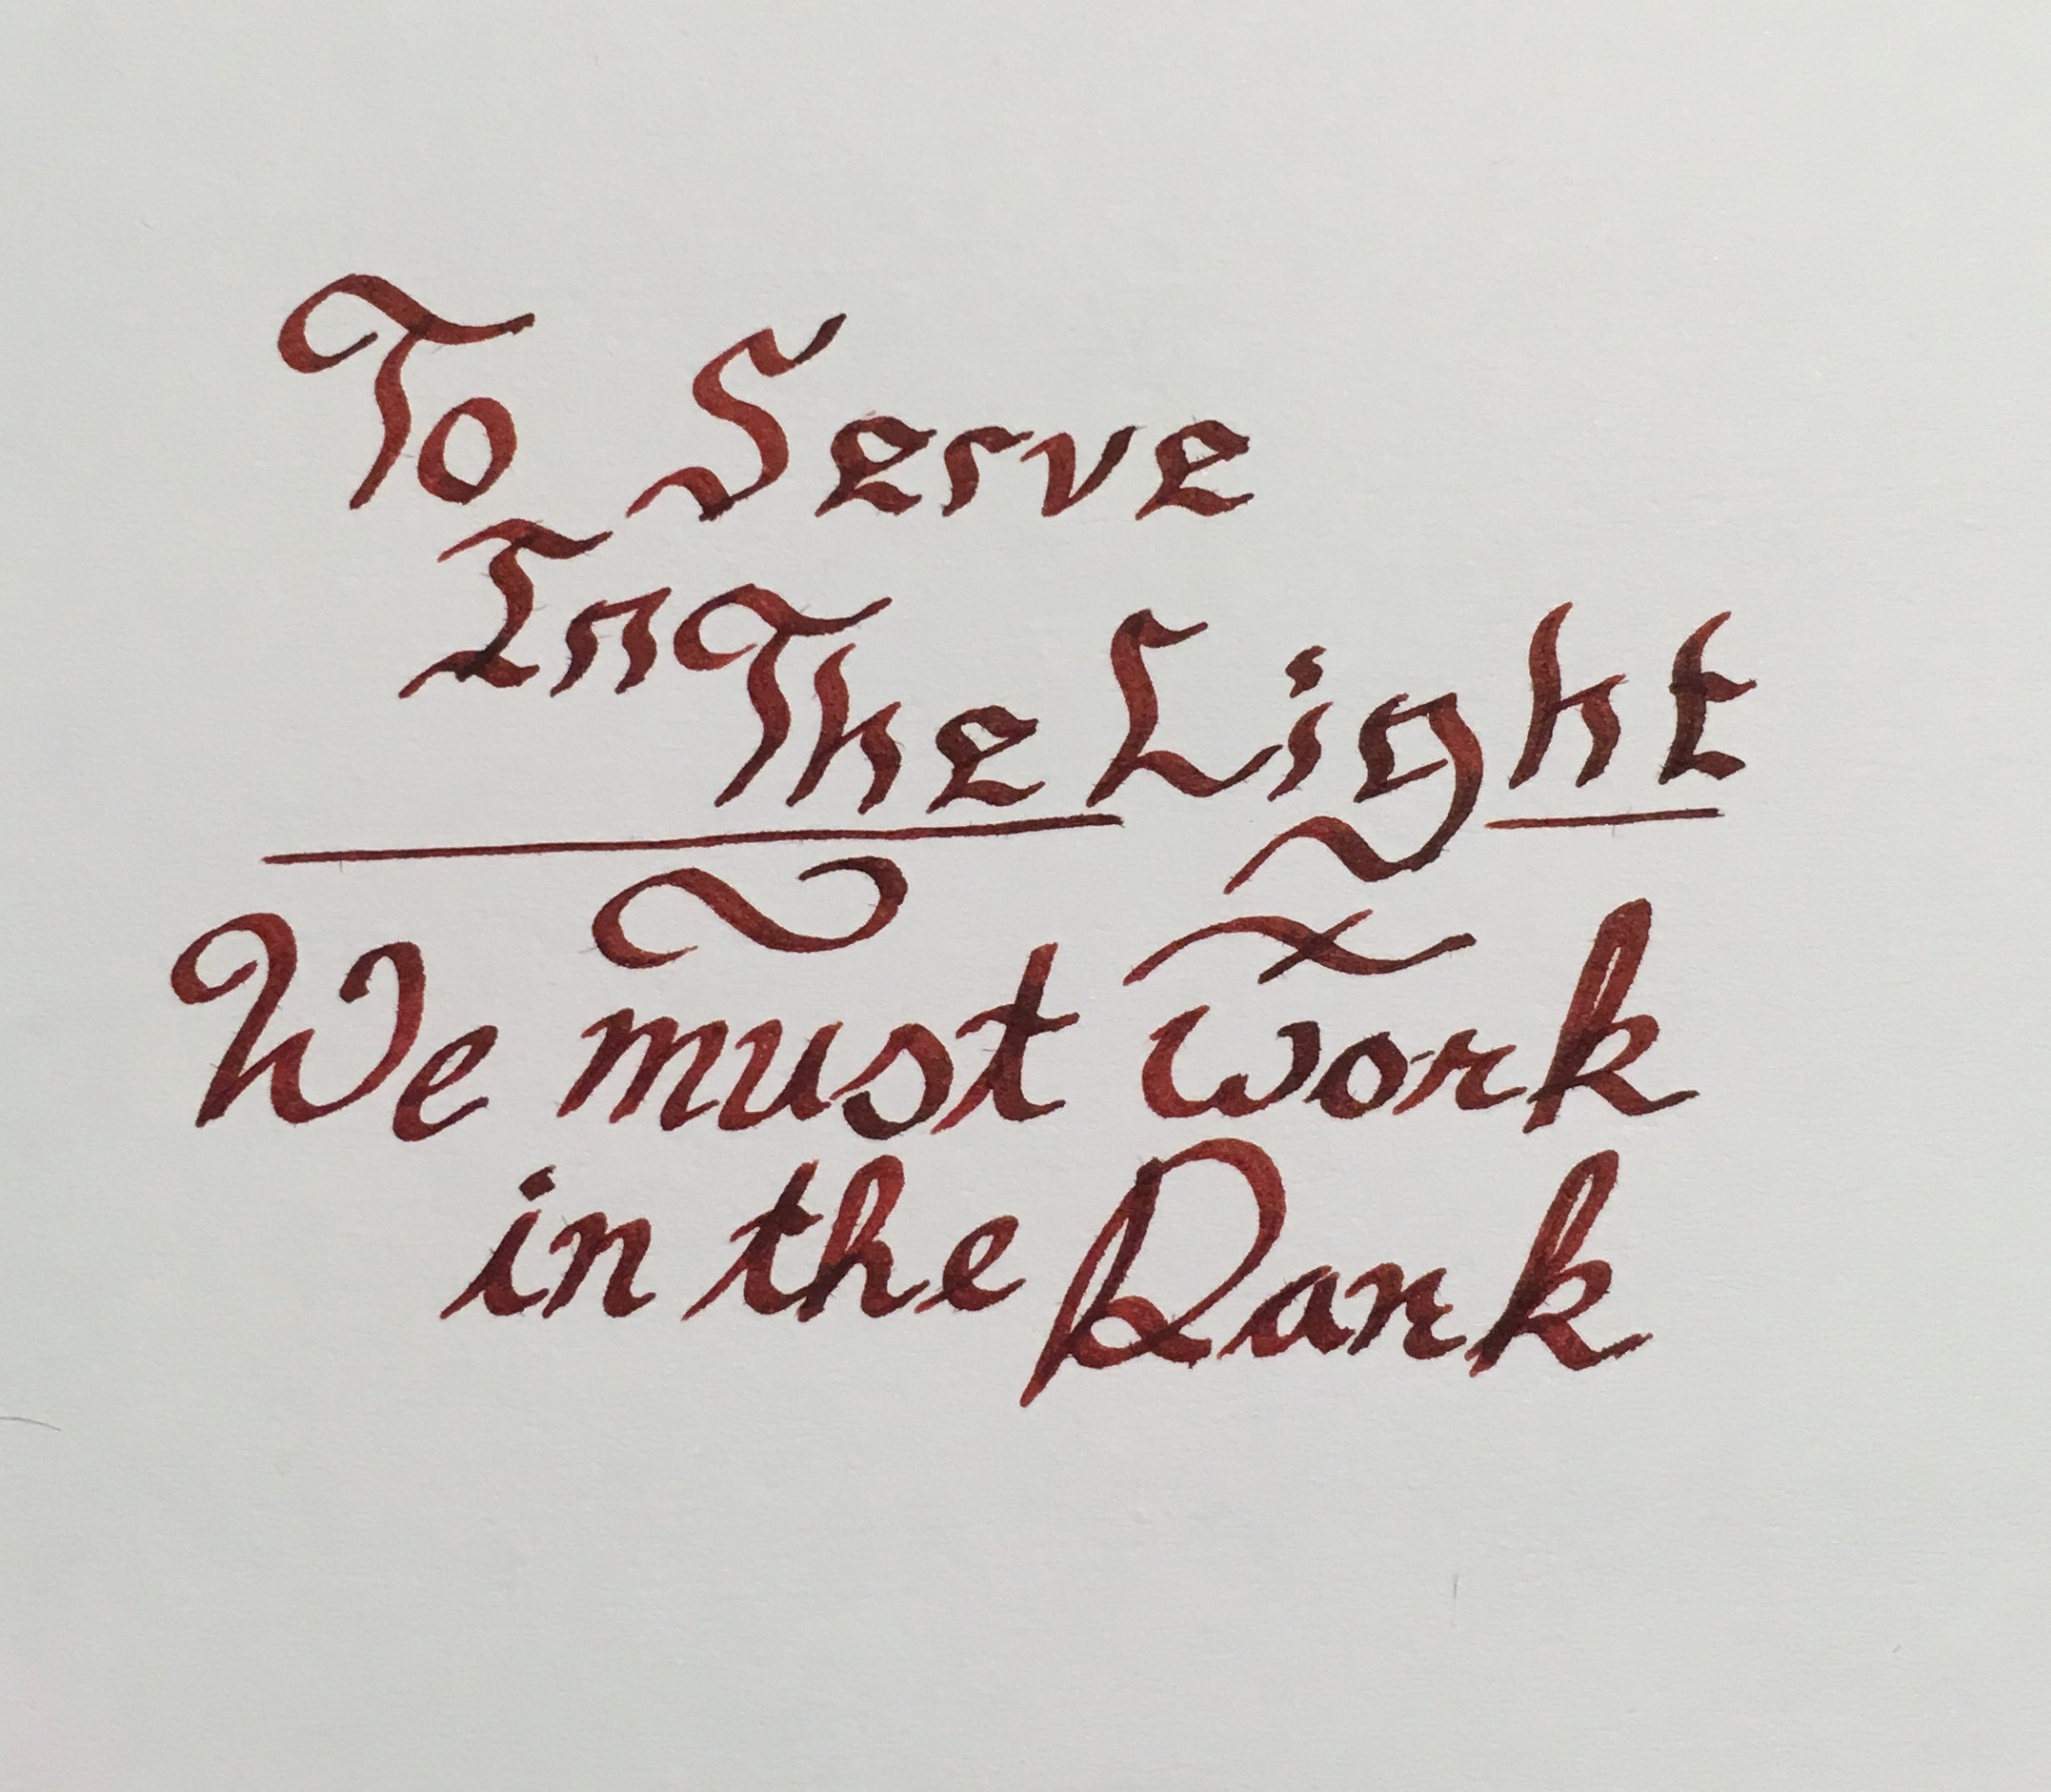 To Serve
In The Light
We must work
in the Dark